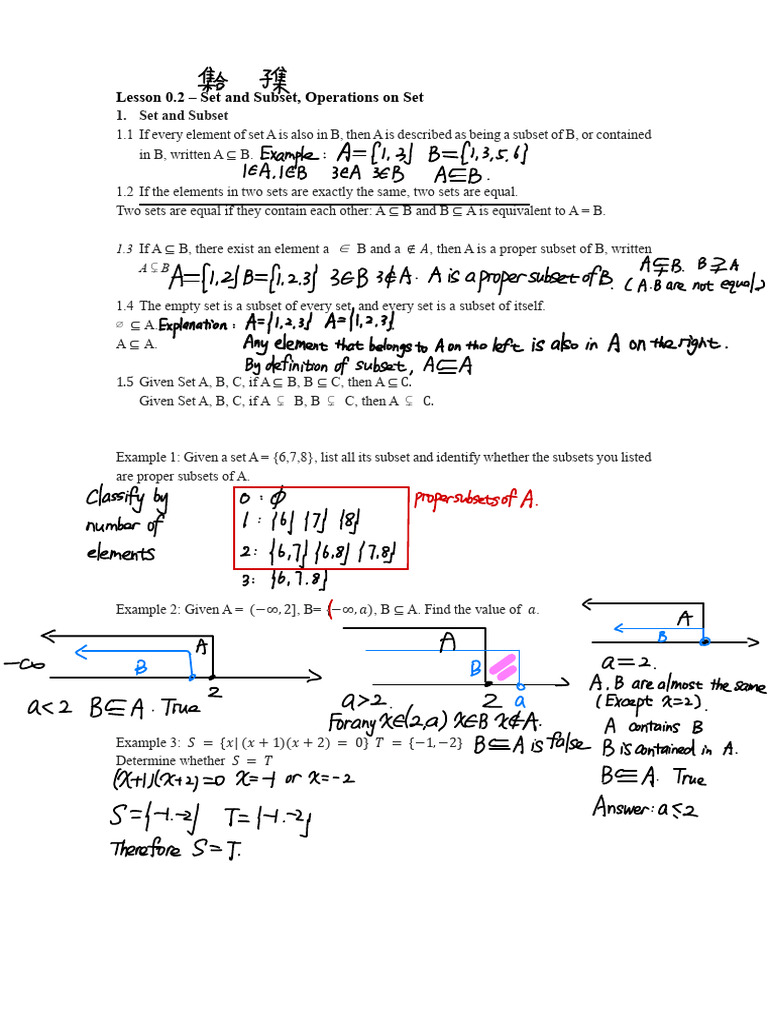 集合 子集
Lesson 0.2 – Set and Subset, Operations on Set
1. Set and Subset
1.1 If every element of set A is also in B, then A is described as being a subset of B, or contained
in B, written A ⊆ B. Example: A={1,3} B={1,3,5,6}
1∈A, 1∈B 3∈A 3∈B A⊆B.
1.2 If the elements in two sets are exactly the same, two sets are equal.
Two sets are equal if they contain each other: A ⊆ B and B ⊆ A is equivalent to A = B.
1.3 If A ⊆ B, there exist an element a ∈ B and a ∉ A, then A is a proper subset of B, written
A ⊊ B A={1,2} B={1,2,3} 3∈B 3∉A. A is a proper subset of B.
A⊊B. B⊋A
(A.B are not equal)
1.4 The empty set is a subset of every set, and every set is a subset of itself.
∅ ⊆ A. Explanation: A={1,2,3} A={1,2,3}.
A ⊆ A. Any element that belongs to A on the left is also in A on the right.
By definition of subset, A⊆A
1.5 Given Set A, B, C, if A ⊆ B, B ⊆ C, then A ⊆ C.
Given Set A, B, C, if A ⊊ B, B ⊊ C, then A ⊊ C.
Example 1: Given a set A = {6,7,8}, list all its subset and identify whether the subsets you listed
are proper subsets of A.
Classify by
number of
elements
0: ∅
1: {6} {7} {8}
2: {6,7} {6,8} {7,8}
3: {6,7.8}
proper subsets of A.
Example 2: Given A = (−∞, 2], B= (−∞, a), B ⊆ A. Find the value of a.
A
B
−∞
2
a<2 B⊆A. True
A
B
2
a
a>2.
For any x∈(2,a) x∈B x∉A.
B⊆A is false
A
B
a=2.
A, B are almost the same
(Except x=2).
A contains B
B is contained in A.
B⊆A. True
Answer: a≤2
Example 3: S = {x| (x + 1)(x + 2) = 0} T = {−1, −2}
Determine whether S = T
(x+1)(x+2)=0 x=-1 or x=-2
S={-1.-2} T={-1.-2}
Therefore S=T.